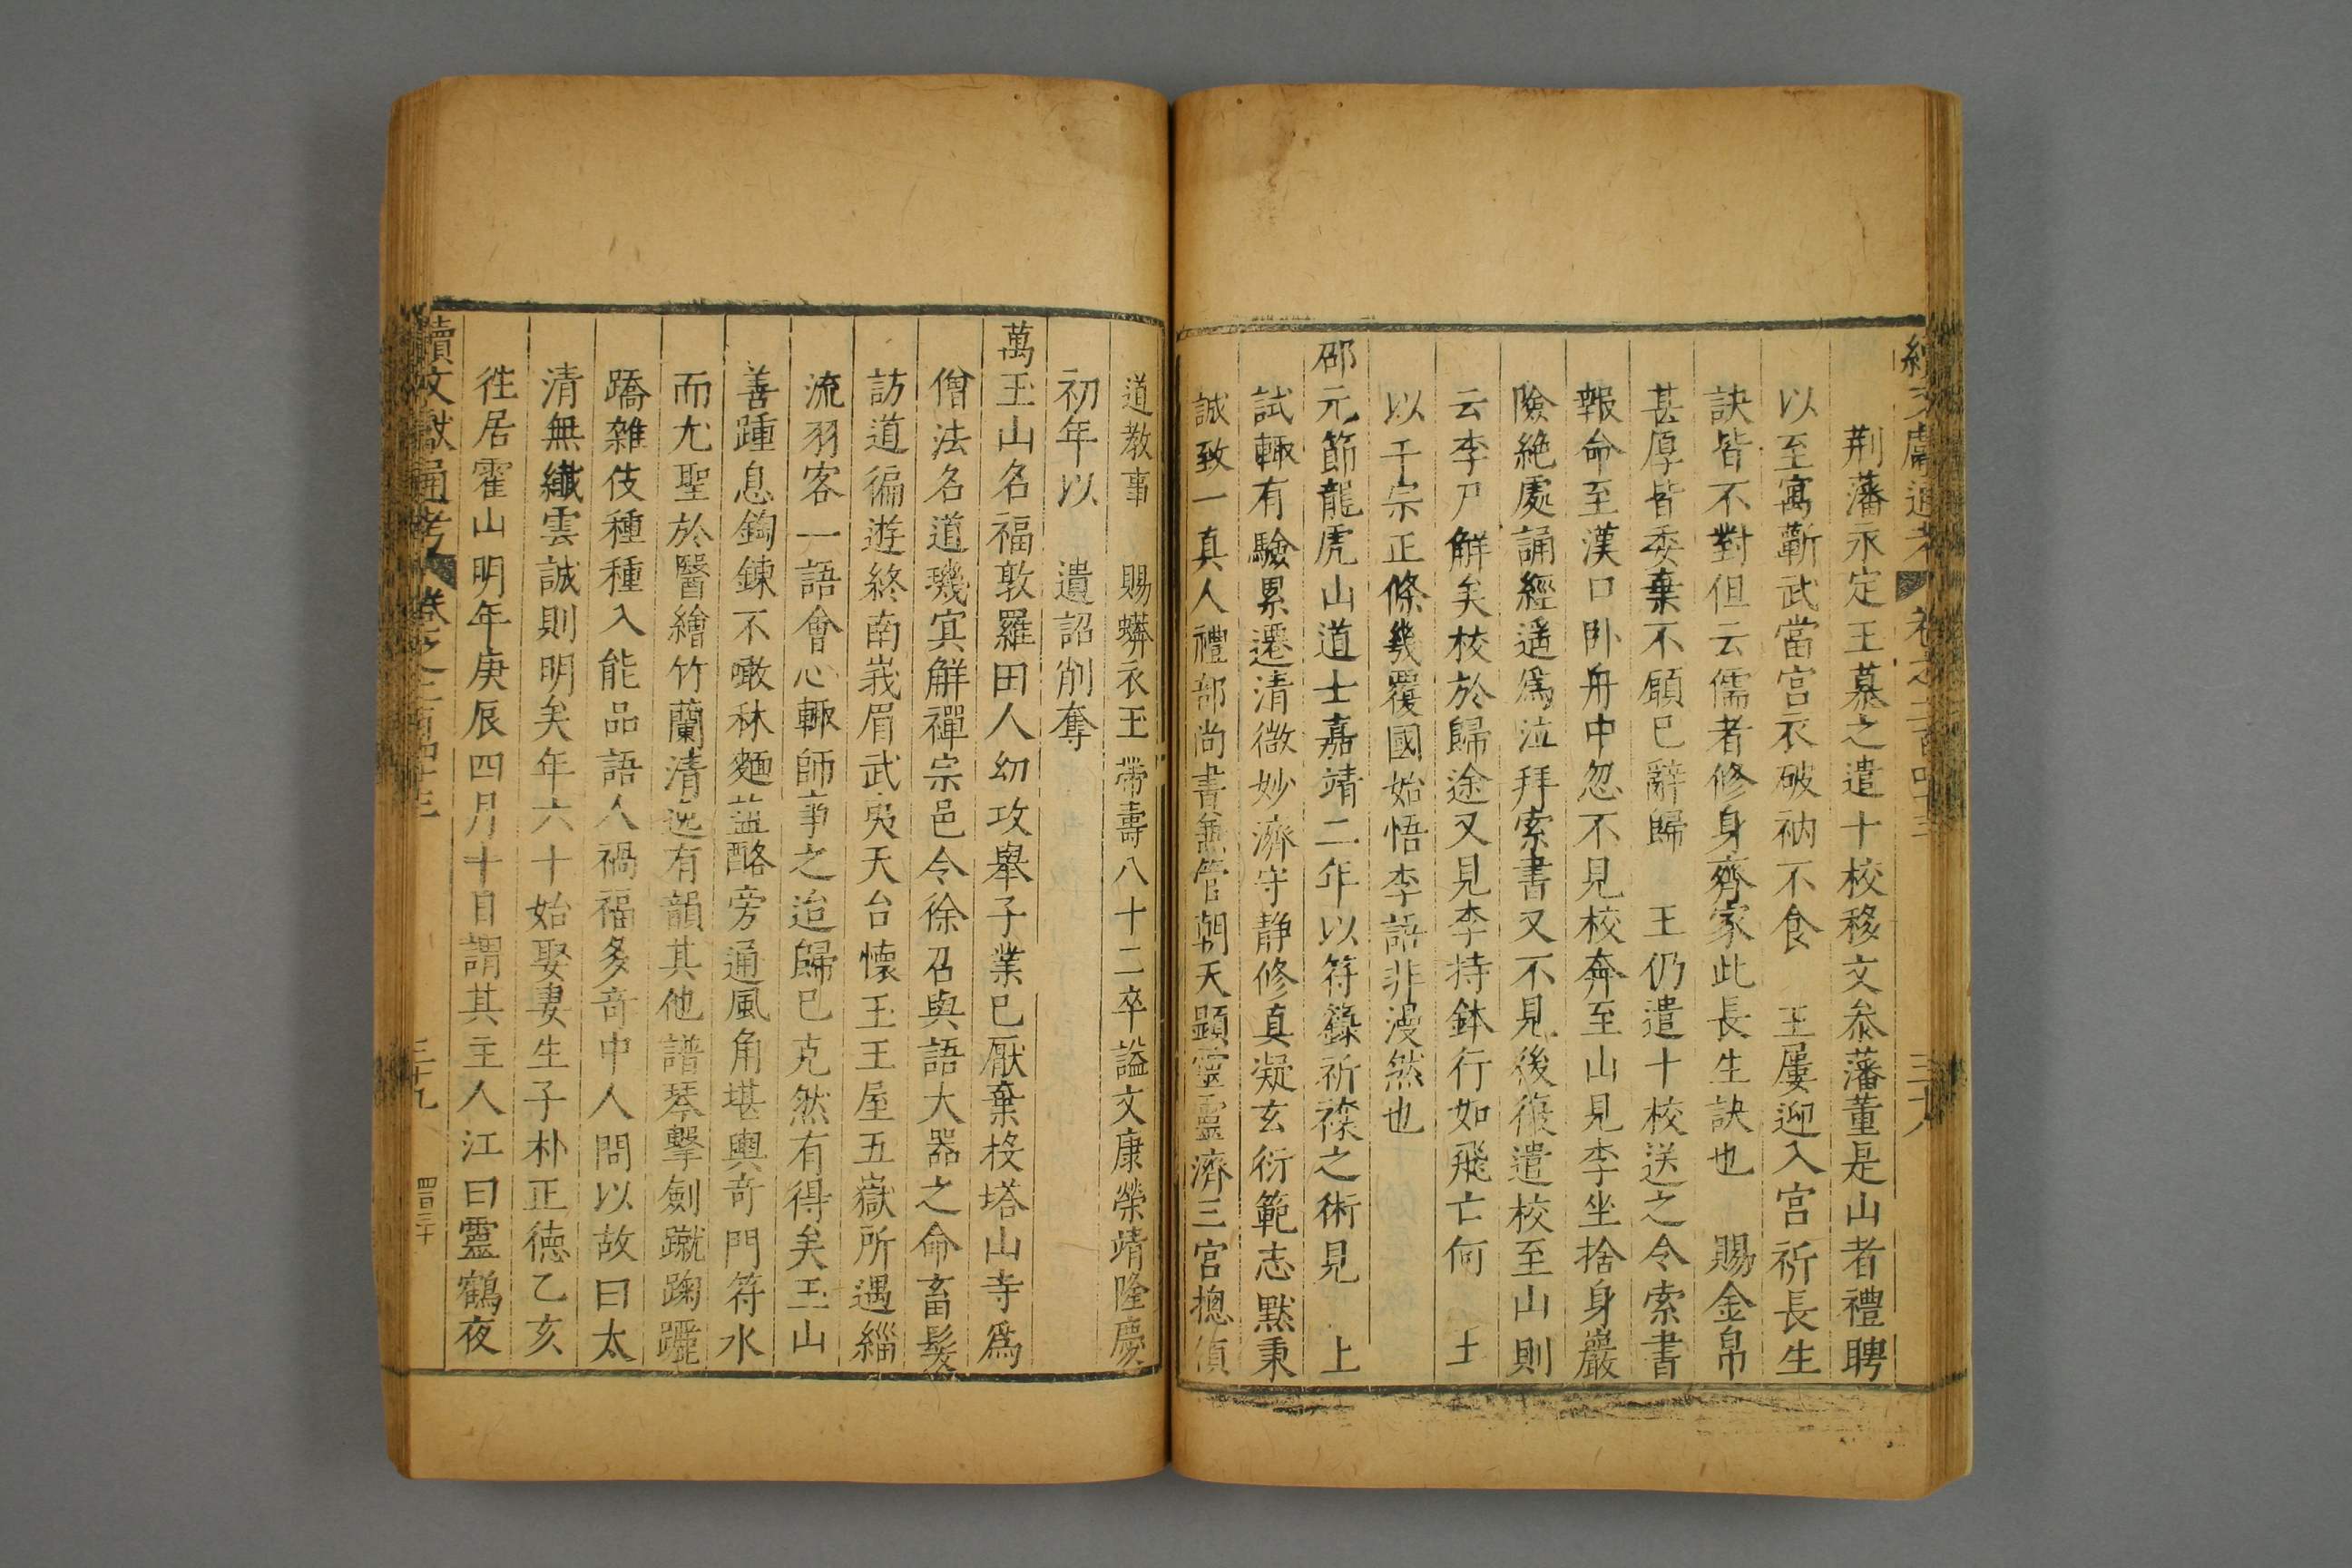 荆藩永定王慕之遣十校移文叅藩董是山者禮聘
以至寓蘄武當宫衣破衲不食　王屢迎入宫祈長生
訣皆不對但云儒者修身齊家此長生訣也　賜金帛
甚厚皆委棄不顧已辭歸　王仍遣十校送之令索書
報命至漢口卧舟中忽不見校奔至山見李坐捨身巖
險絶處誦經遥爲泣拜索書又不見後復遣校至山則
云李尸解矣校於歸途又見李持鉢行如飛亡何　王
以干宗正條幾覆國始悟李語非漫然也
邵元節龍虎山道士嘉靖二年以符籙祈禖之術見　上
試輙有驗累遷清微妙濟守静修真凝玄衍範志黙秉
誠致一真人禮部尚書無管朝天顯靈靈濟三宫摠
道教事　賜蟒衣玉帶壽八十二卒謚文康榮靖隆慶
初年以　遺詔削奪
萬玉山名福敦羅田人幼攻舉子業已厭棄校塔山寺爲
僧法名道璣㝠解禪宗邑令徐召與語大器之命畜髮
訪道徧遊終南峩眉武夷天台懷玉王屋五嶽所遇緇
流羽客一語會心輙師事之迨歸已克然有得矣玉山
善踵息鍧鍊不噉秫麵葅酪旁通風角堪輿奇門符水
而尤聖於醫繪竹蘭清逸有韻其他譜琴擊劍蹴踘躧
蹻雜伎種種入能品語人禍福多奇中人問以故曰太
清無纎雲誠則明矣年六十始娶妻生子朴正德乙亥
徃居霍山明年庚辰四月十日謂其主人江曰靈鶴夜
續文獻通考　卷之二百四十三　三十九　四百三十